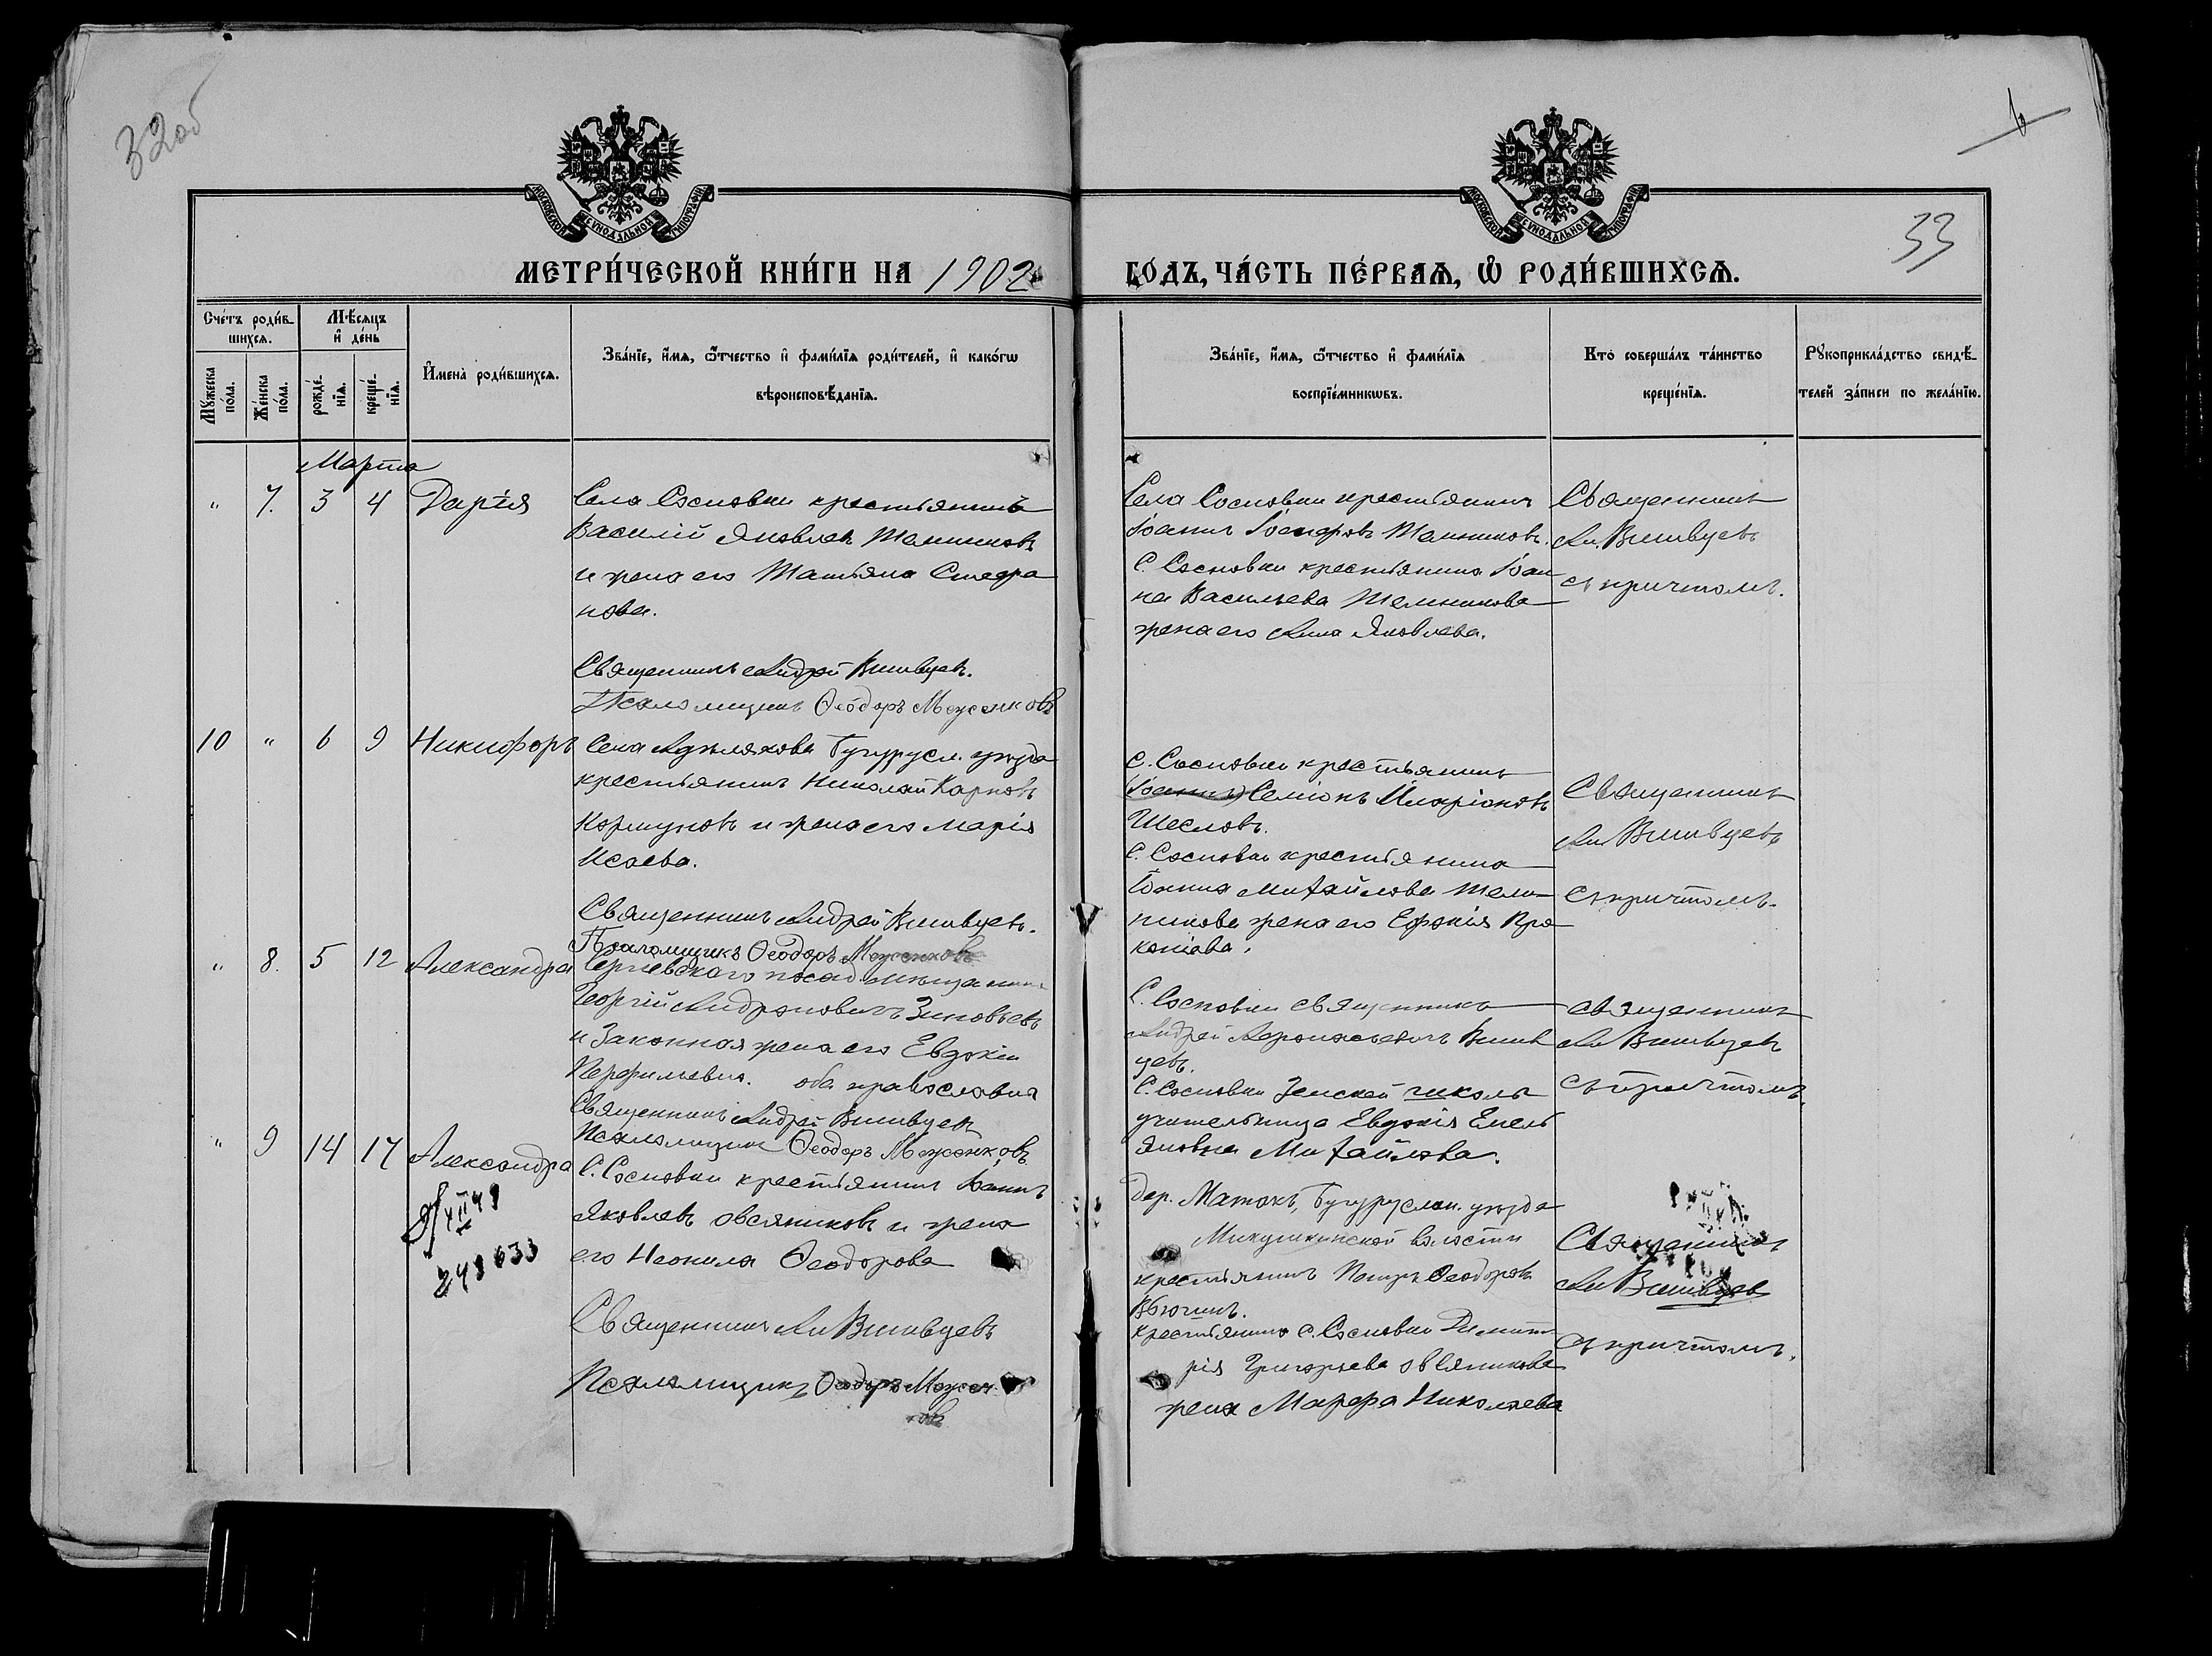 32об
6
33
МЕТРИ́ЧЕСКОЙ КНИ́ГИ НА 1902
ГО́ДЪ, ЧА́СТЬ ПЕ́РВАЯ, Ѡ РОДИ́ВШИХСЯ.
Сче́тъ роди́вшихся.
Мꙋ́жеска по́ла.
Же́нска по́ла.
Мѣ́сяцъ и де́нь
рожде́нїя.
креще́нїя.
И҆мена̀ роди́вшихся.
Зва́нїе, и҆́мя, ѻ҆́тчество и҆ фами́лїя роди́телей, и҆ како́гѡ
вѣроисповѣ́данїя.
Зва́нїе, и҆́мя, ѻ҆́тчество и҆ фами́лїя
воспрїе́мникѡвъ.
Кто̀ соверша́лъ та́инство
креще́нїя.
Рꙋкоприкла́дство свидѣ́телей за́писи по жела́нїю.
Марта
" 7. 3 4 Дарія
Села Сосновки крестьянинъ
Василій Яковлевъ
и жена его Татьяна Стефа
нова.
Священникъ Андрей
Псаломщикъ Ѳеодоръ
Села Сосновки крестьянинъ
Іоаннъ Іосифовъ
С. Сосновки крестьянина Іоан
на Васильева
жена его Анна Яковлева.
Священникъ
Ан.
съ причтомъ.
10 " 6 9 Никифоръ
Села Бугурусл. уѣзда
крестьянинъ Николай Карповъ
Коршуновъ и жена его Марія
Исаева.
Священникъ Андрей
Псаломщикъ Ѳеодоръ
С. Сосновки крестьянинъ
Іоаннъ Семіонъ Иларіоновъ
С. Сосновки крестьянина
Іоанна Михайлова
жена его Евдокія Про
копіева.
Священникъ
Ан
съ причтомъ.
" 8. 5 12 Александра
Сергіевскаго посад. мѣщанинъ
Георгій Андроновичъ Зиновьевъ
и Законная жена его Евдокія
Перфильевна. оба православна
Священникъ Андрей
Псаломщикъ Ѳеодоръ
С. Сосновки священникъ
Андрей
С. Сосновки Земской школы
учительница Евдокія Емель
яновна Михайлова.
священникъ
Ан
съ причтомъ.
" 9 14 17 Александра
С. Сосновки крестьянинъ Іоаннъ
Яковлевъ Овсяниковъ и жена
его Неонила Ѳеодорова
Священникъ Ан
Псаломщикъ Ѳеодоръ
дер. Матокъ, Бугуруслан. уѣзда
Микушкинской волости
крестьянинъ Петръ Ѳеодоровъ
Вьюгинъ.
крестьянина с. Сосновки Димит
рія Григорьева Овсяникова
жена Марфа Николаева
Священникъ
Ан
съ причтомъ.